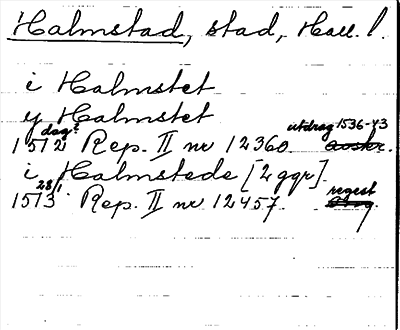 Halmstad, stad, Hall. l.
i Halmstet
y Halmstet
dag? utdrag 1536-43
1512 Rep. II nr 12360. avskr.
i Halmstede [2 ggr].
28/1 regest
1513 Rep. II nr 12457.